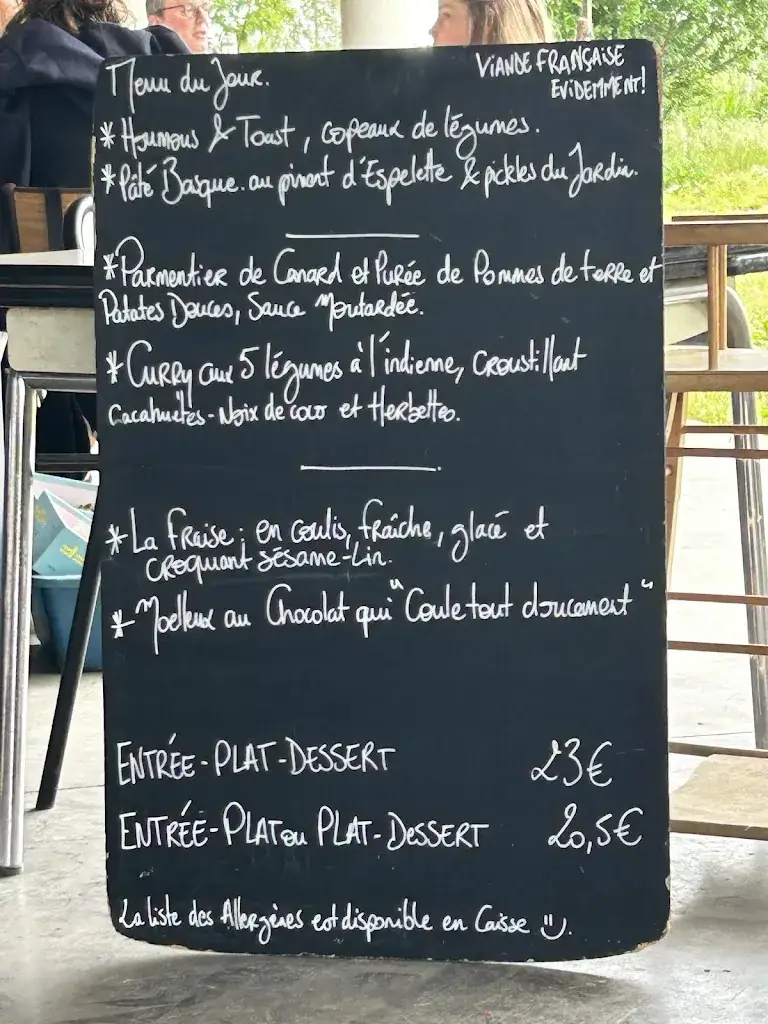 Menu du Jour.
VIANDE FRANÇAISE
EVIDEMMENT!
* Houmous & Toast, copeaux de légumes.
* Pâté Basque. au piment d'Espelette & pickles du Jardin.
* Parmentier de Canard et Purée de Pommes de terre et
Patates Douces, Sauce Moutardée.
* Curry aux 5 légumes à l'indienne, Croustillant
Cacahuètes-Noix de coco et Herbettes.
* La Fraise: en coulis, fraîche, glacé et
croquant sésame-Lin.
* Moelleux au Chocolat qui "Coule tout doucement"
ENTRÉE-PLAT-DESSERT 23€
ENTRÉE-PLAT ou PLAT-DESSERT 20,5€
La liste des Allergènes est disponible en Caisse :).